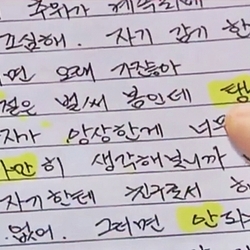 추위가 계속되네
조심해. 자기 감기 한
면 오래 가잖아
절은 벌써 봄인데 탱
자가 앙상한게 너무
가만히 생각해보니까
자기한테 친구로서 한
없어. 그러면 안 되